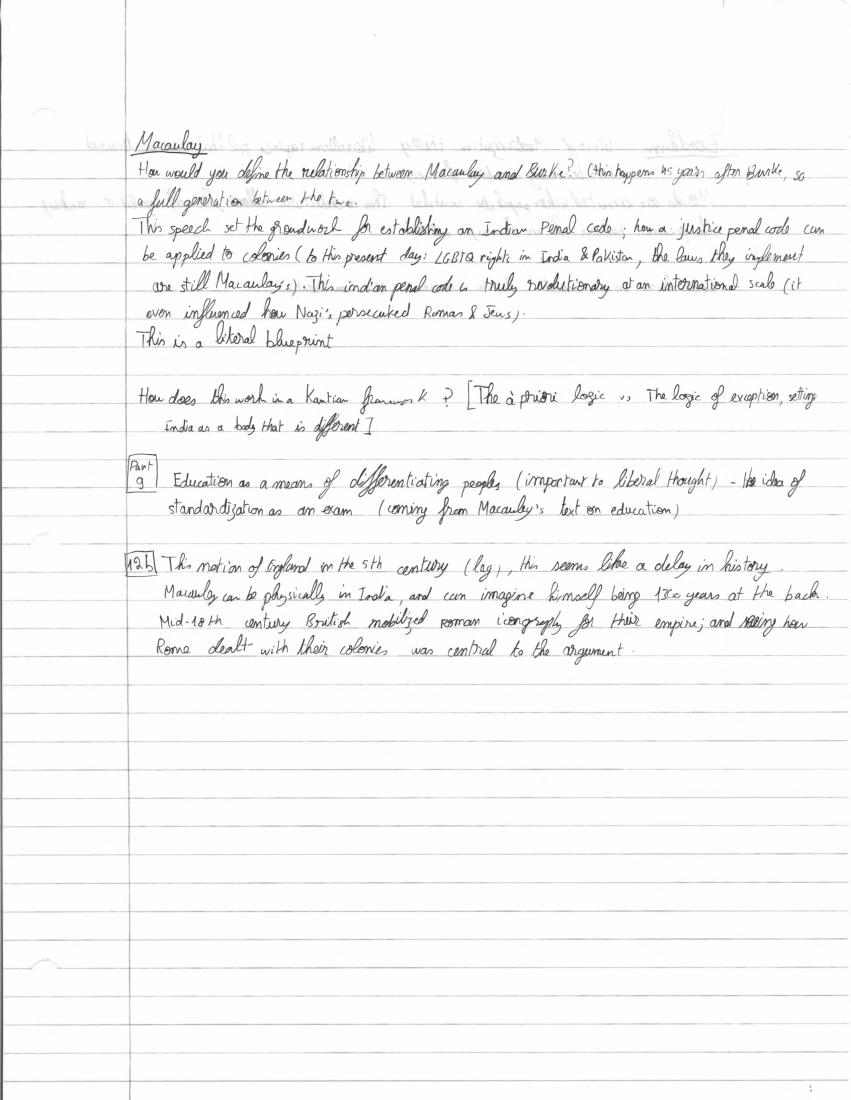 Macaulay
How would you define the relationship between Macaulay and Burke? (this happens 45 years after Burke, so
a full generation between the two.
This speech set the groundwork for establishing an Indian Penal code; how a justice penal code can
be applied to colonies (to this present day: LGBTQ rights in India & Pakistan, the laws they implement
are still Macaulay's). This indian penal code is truly revolutionary at an international scale (it
even influenced how Nazi's persecuted Romas & Jews).
This is a literal blueprint
How does this work in a Kantian framework? [The à priori logic vs The logic of exception, setting
India as a body that is different]
Part
9
Education as a means of differentiating peoples (important to liberal thought) - the idea of
standardization as an exam (coming from Macaulay's text on education)
12b This notion of England in the 5th century (lag), this seems like a delay in history.
Macaulay can be physically in India, and can imagine himself being 1300 years at the back.
Mid-18th century British mobilized roman iconography for their empire; and seeing how
Rome dealt with their colonies was central to the argument.